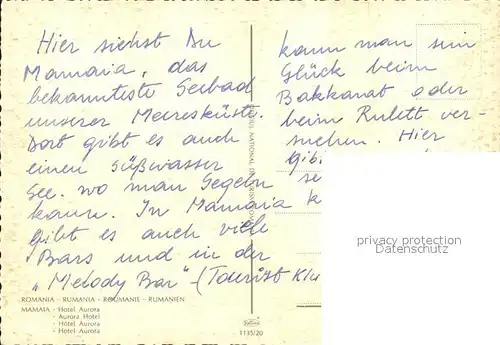 Hier siehst Du
Mamaia, das
bekannteste Seebad
unserer Meeresküste.
Dort gibt es auch
einen Süßwasser
See. wo man Segeln
kann. In Mamaia
gibt es auch viele
Bars und in der
"Melody Bar" - (Tourist Klu
kann man sein
Glück beim
Bakkarat oder
beim Rulett ver-
suchen. Hier
gib
se
k
privacy protection
by DarmaSoft
ROMANIA - RUMANIA - ROUMANIE - RUMANIEN
MAMAIA - Hotel Aurora
- Aurora Hotel
- Hôtel Aurora
- Hotel Aurora
1135/20